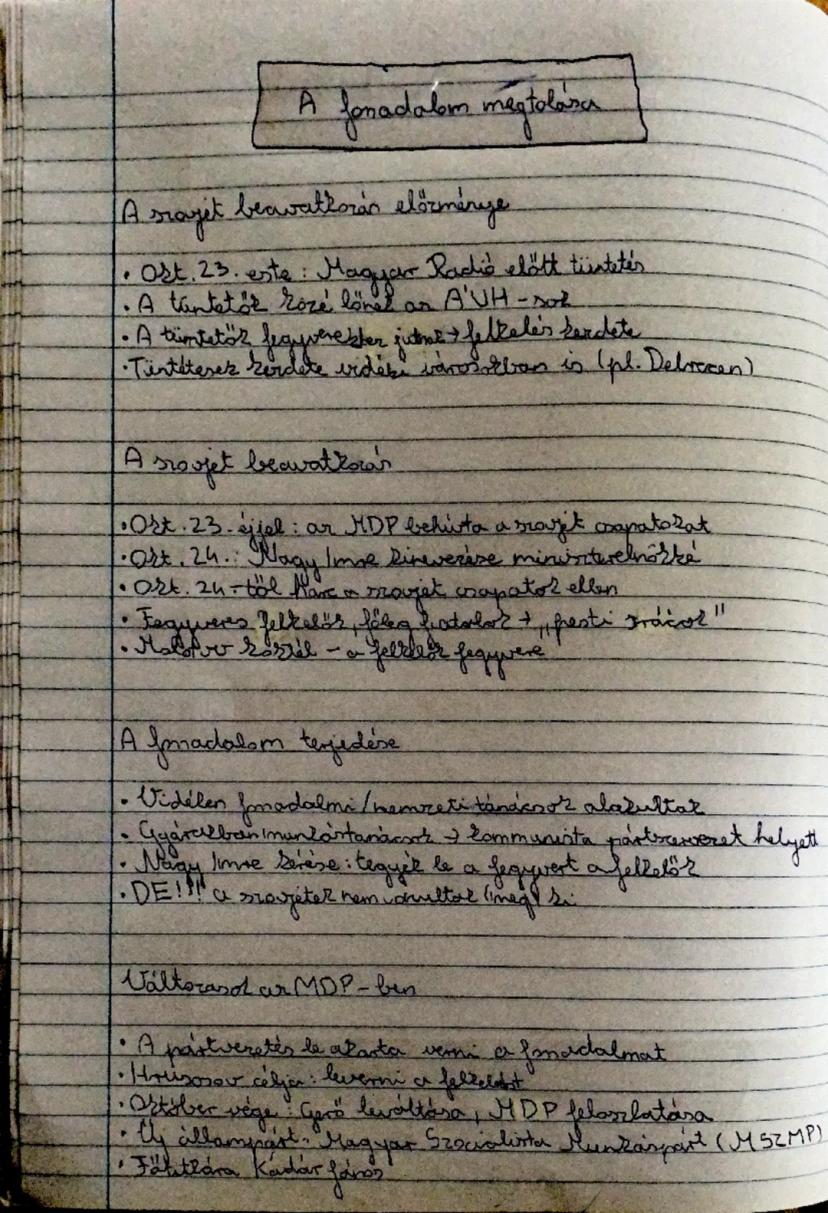 A forradalom megtolása
A szovjet beavatkozás előzménye
• Okt. 23. este: Magyar Rádió előtt tüntetés
• A tüntetők közé lőnek az ÁVH-sok
• A tüntetők fegyverekhez jutnak → felkelés kezdete
• Tüntetések kezdete vidéki városokban is (pl. Debrecen)
A szovjet beavatkozás
• Okt. 23. éjjel: az MDP behívta a szovjet csapatokat
• Okt. 24.: Nagy Imre kinevezése miniszterelnökké
• Okt. 24-től harc a szovjet csapatok ellen
• Fegyveres felkelők, főleg fiatalok → „pesti srácok"
• Molotov koktél - a felkelők fegyvere
A forradalom terjedése
• Vidéken forradalmi/nemzeti tanácsok alakultak
• Gyárakban munkástanácsok → kommunista pártszervezet helyett
• Nagy Imre kérése: tegyék le a fegyvert a felkelők
• DE!!! a szovjetek nem vonultak (még) ki
Változások az MDP-ben
• A pártvezetés le akarta verni a forradalmat
• Hruscsov célja: leverni a felkelést
• Október vége: Gerő leváltása, MDP feloszlatása
• Új állampárt: Magyar Szocialista Munkáspárt (MSZMP)
• Főtitkára Kádár János